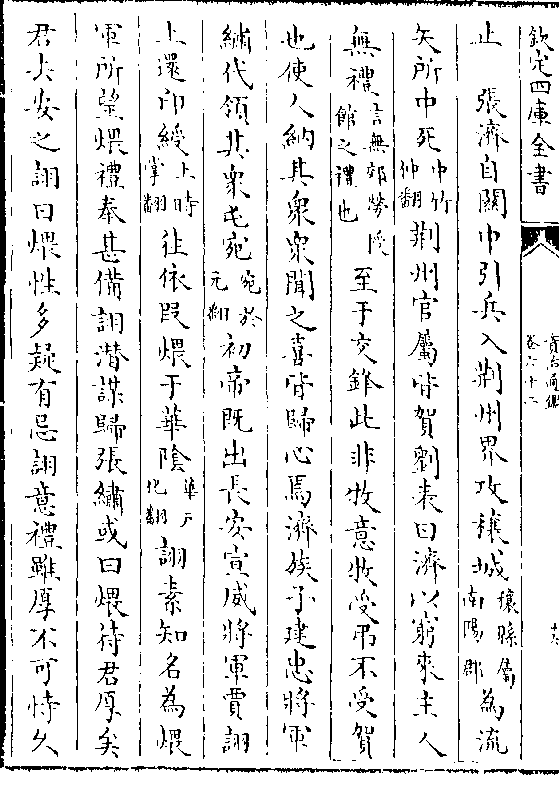 欽定四庫全書
資治通鑑
卷六十二
止　張濟自關中引兵入荆州界攻穰城穰縣屬南陽郡為流
矢所中死中竹仲翻荆州官屬皆賀劉表曰濟以窮來主人
無禮言無郊勞授館之禮也至于交鋒此非牧意牧受弔不受賀
也使人納其衆衆聞之喜皆歸心焉濟族子建忠將軍
繡代領其衆屯宛宛於元翻初帝既出長安宣威將軍賈詡
上還印綬上時掌翻往依段煨于華隂華户化翻詡素知名為煨
軍所望煨禮奉甚備詡潛謀歸張繡或曰煨待君厚矣
君去安之詡曰煨性多疑有忌詡意禮雖厚不可恃久